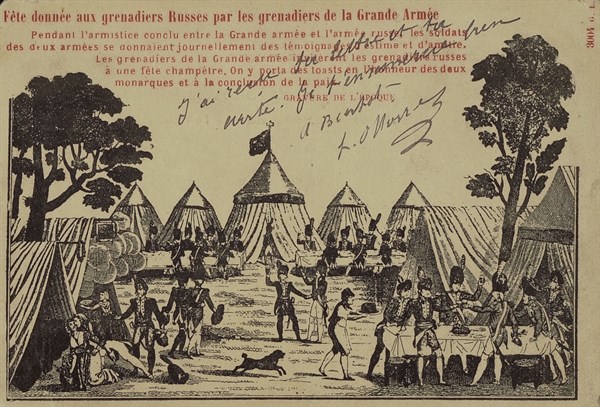 Fête donnée aux grenadiers Russes par les grenadiers de la Grande Armée
Pendant l'armistice conclu entre la Grande armée et l'armée russe, les soldats
des deux armées se donnaient journellement des témoignages d'estime et d'amitié.
Les grenadiers de la Grande armée invitèrent les grenadiers russes
à une fête champêtre, On y porta des toasts en l'honneur des deux
monarques et à la conclusion de la paix
GRAVURE DE L'ÉPOQUE
3004 G. L.
J'ai reçu ta lettre et ta
carte. Je t'en
A Bientôt